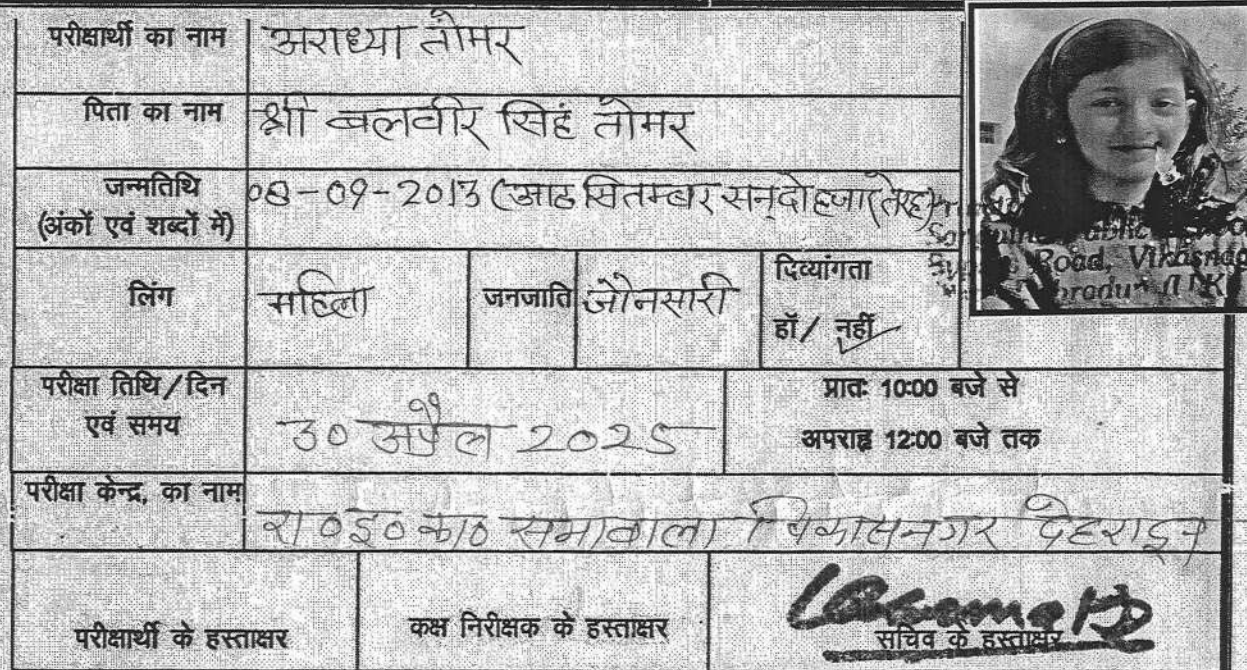 परीक्षार्थी का नाम अराध्या तोमर
पिता का नाम श्री बलवीर सिहं तोमर
जन्मतिथि
(अंकों एवं शब्दों में) 08-09-2013 (आठ सितम्बर सन् दो हजार तेरह)
लिंग महिला जनजाति जौनसारी दिव्यांगता
हॉ / नहीं
Public
Road, Vikasnag
परीक्षा तिथि / दिन
एवं समय 30 अप्रैल 2025
प्रातः 10:00 बजे से
अपराह्न 12:00 बजे तक
परीक्षा केन्द्र, का नाम रा०इ०का० सभावाला विकासनगर देहरादून
परीक्षार्थी के हस्ताक्षर कक्ष निरीक्षक के हस्ताक्षर सचिव के हस्ताक्षर